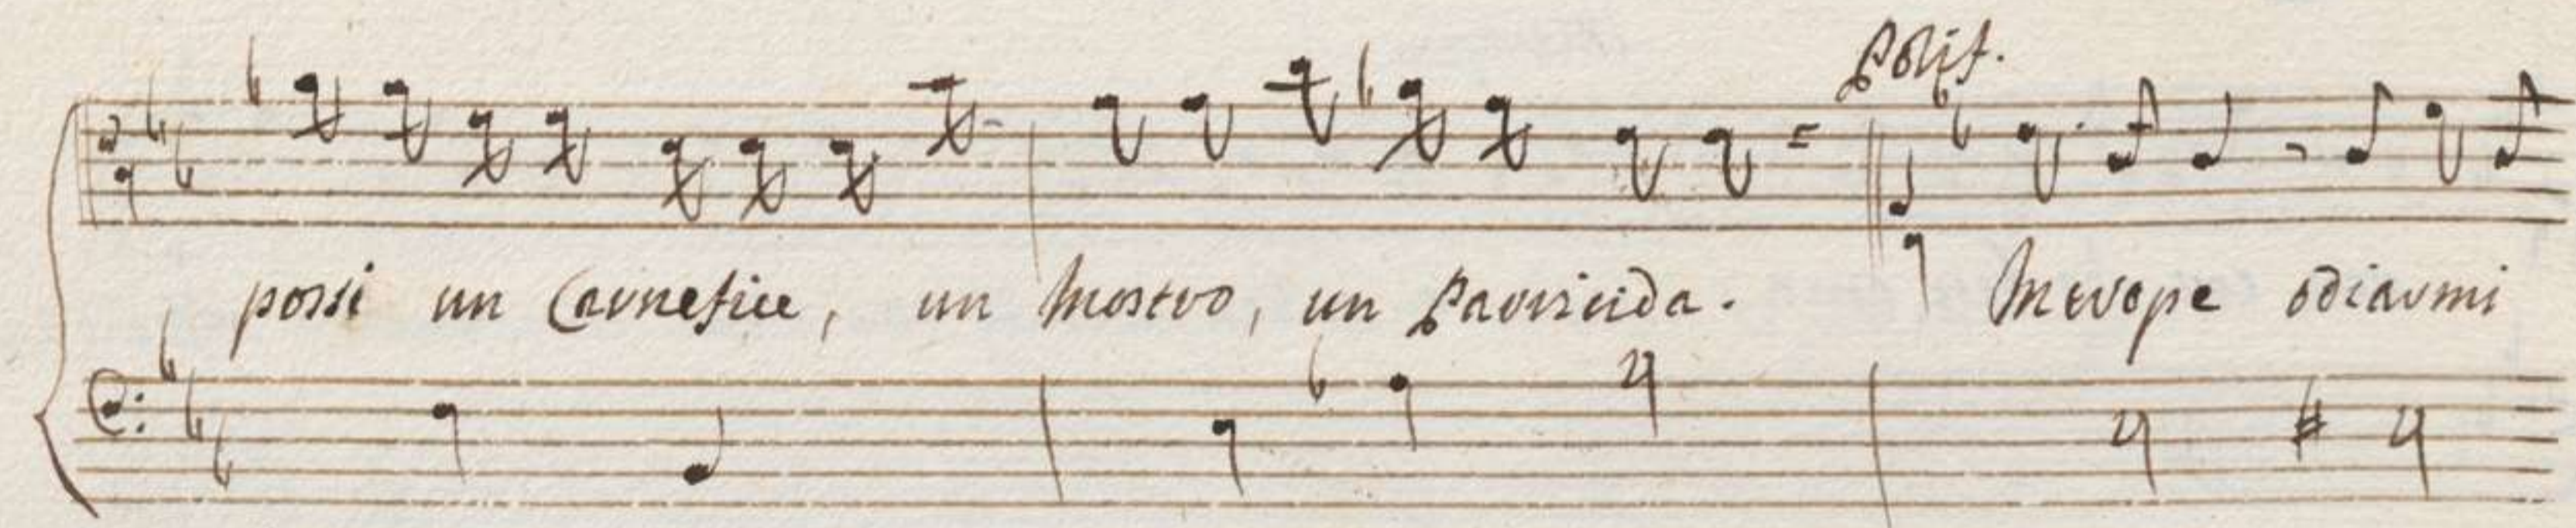 Polif.
possi un Carnefice, un Mostro, un Parricida. Merope odiarmi